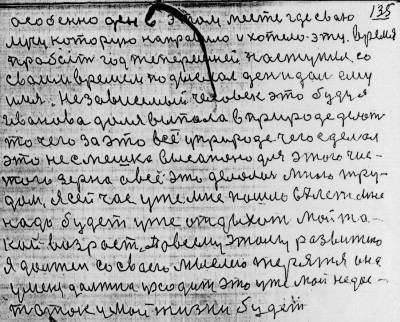 135
особенно ден в этом месте где сваю
мич которую направило и хотело эту. время
пробеит год теперешней наступил со
сваим временем подписал ден и дал ему
имя. независимый человек это буду я
иванова доля выпала в природе
то чего за это всё у природе чего сделал
это не смешка высапоно для этого чис-
того зерна а всё это делалос много тру-
дом, я сей час уже мне пошло лет мне
надо будет уже отдыхат мой та-
кой возраст. По всему этому развитию
я должен со своею мыслею она
умен должна уходит это уже мой недос-
таток у мой жизни будет